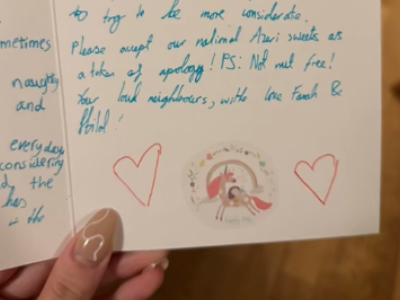 to try to be more considerate.
Please accept our national Azeri sweets as
a token of apology! PS: Not nut free!
Your loud neighbours, with love Farah &
ometimes
naughty
and
everyday
considering
the
has
in the